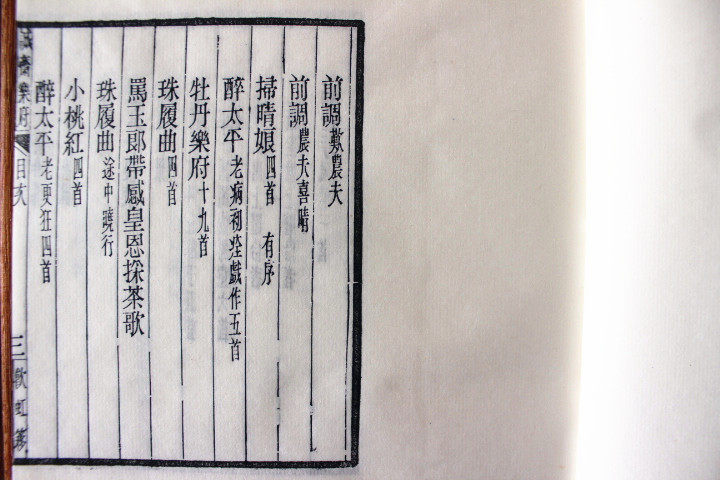 前調歎農夫
前調農夫喜晴
掃晴娘四首 有序
醉太平老病初痊戲作五首
牡丹樂府十九首
珠履曲四首
罵玉郎帶感皇恩採茶歌
珠履曲途中曉行
小桃紅四首
醉太平老更狂四首
誠齋樂府 目次 三 飲虹簃